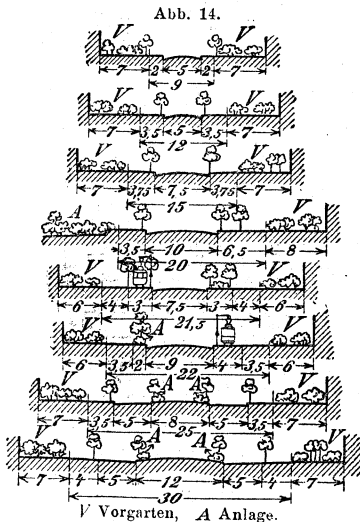 Abb. 14.
V V
7 2 5 2 7
9
V V
7 3,5 5 3,5 7
12
V V
7 3,75 7,5 3,75 7
15
A V
3,5 10 6,5 8
20
V V
6 4 3 7,5 3 4 6
21,5
V A V
6 3,5 2 9 4 3,5 6
22
V A A V
7 3,5 5 8 5 3,5 7
25
V A A V
7 4 5 12 5 4 7
30
V Vorgarten, A Anlage.